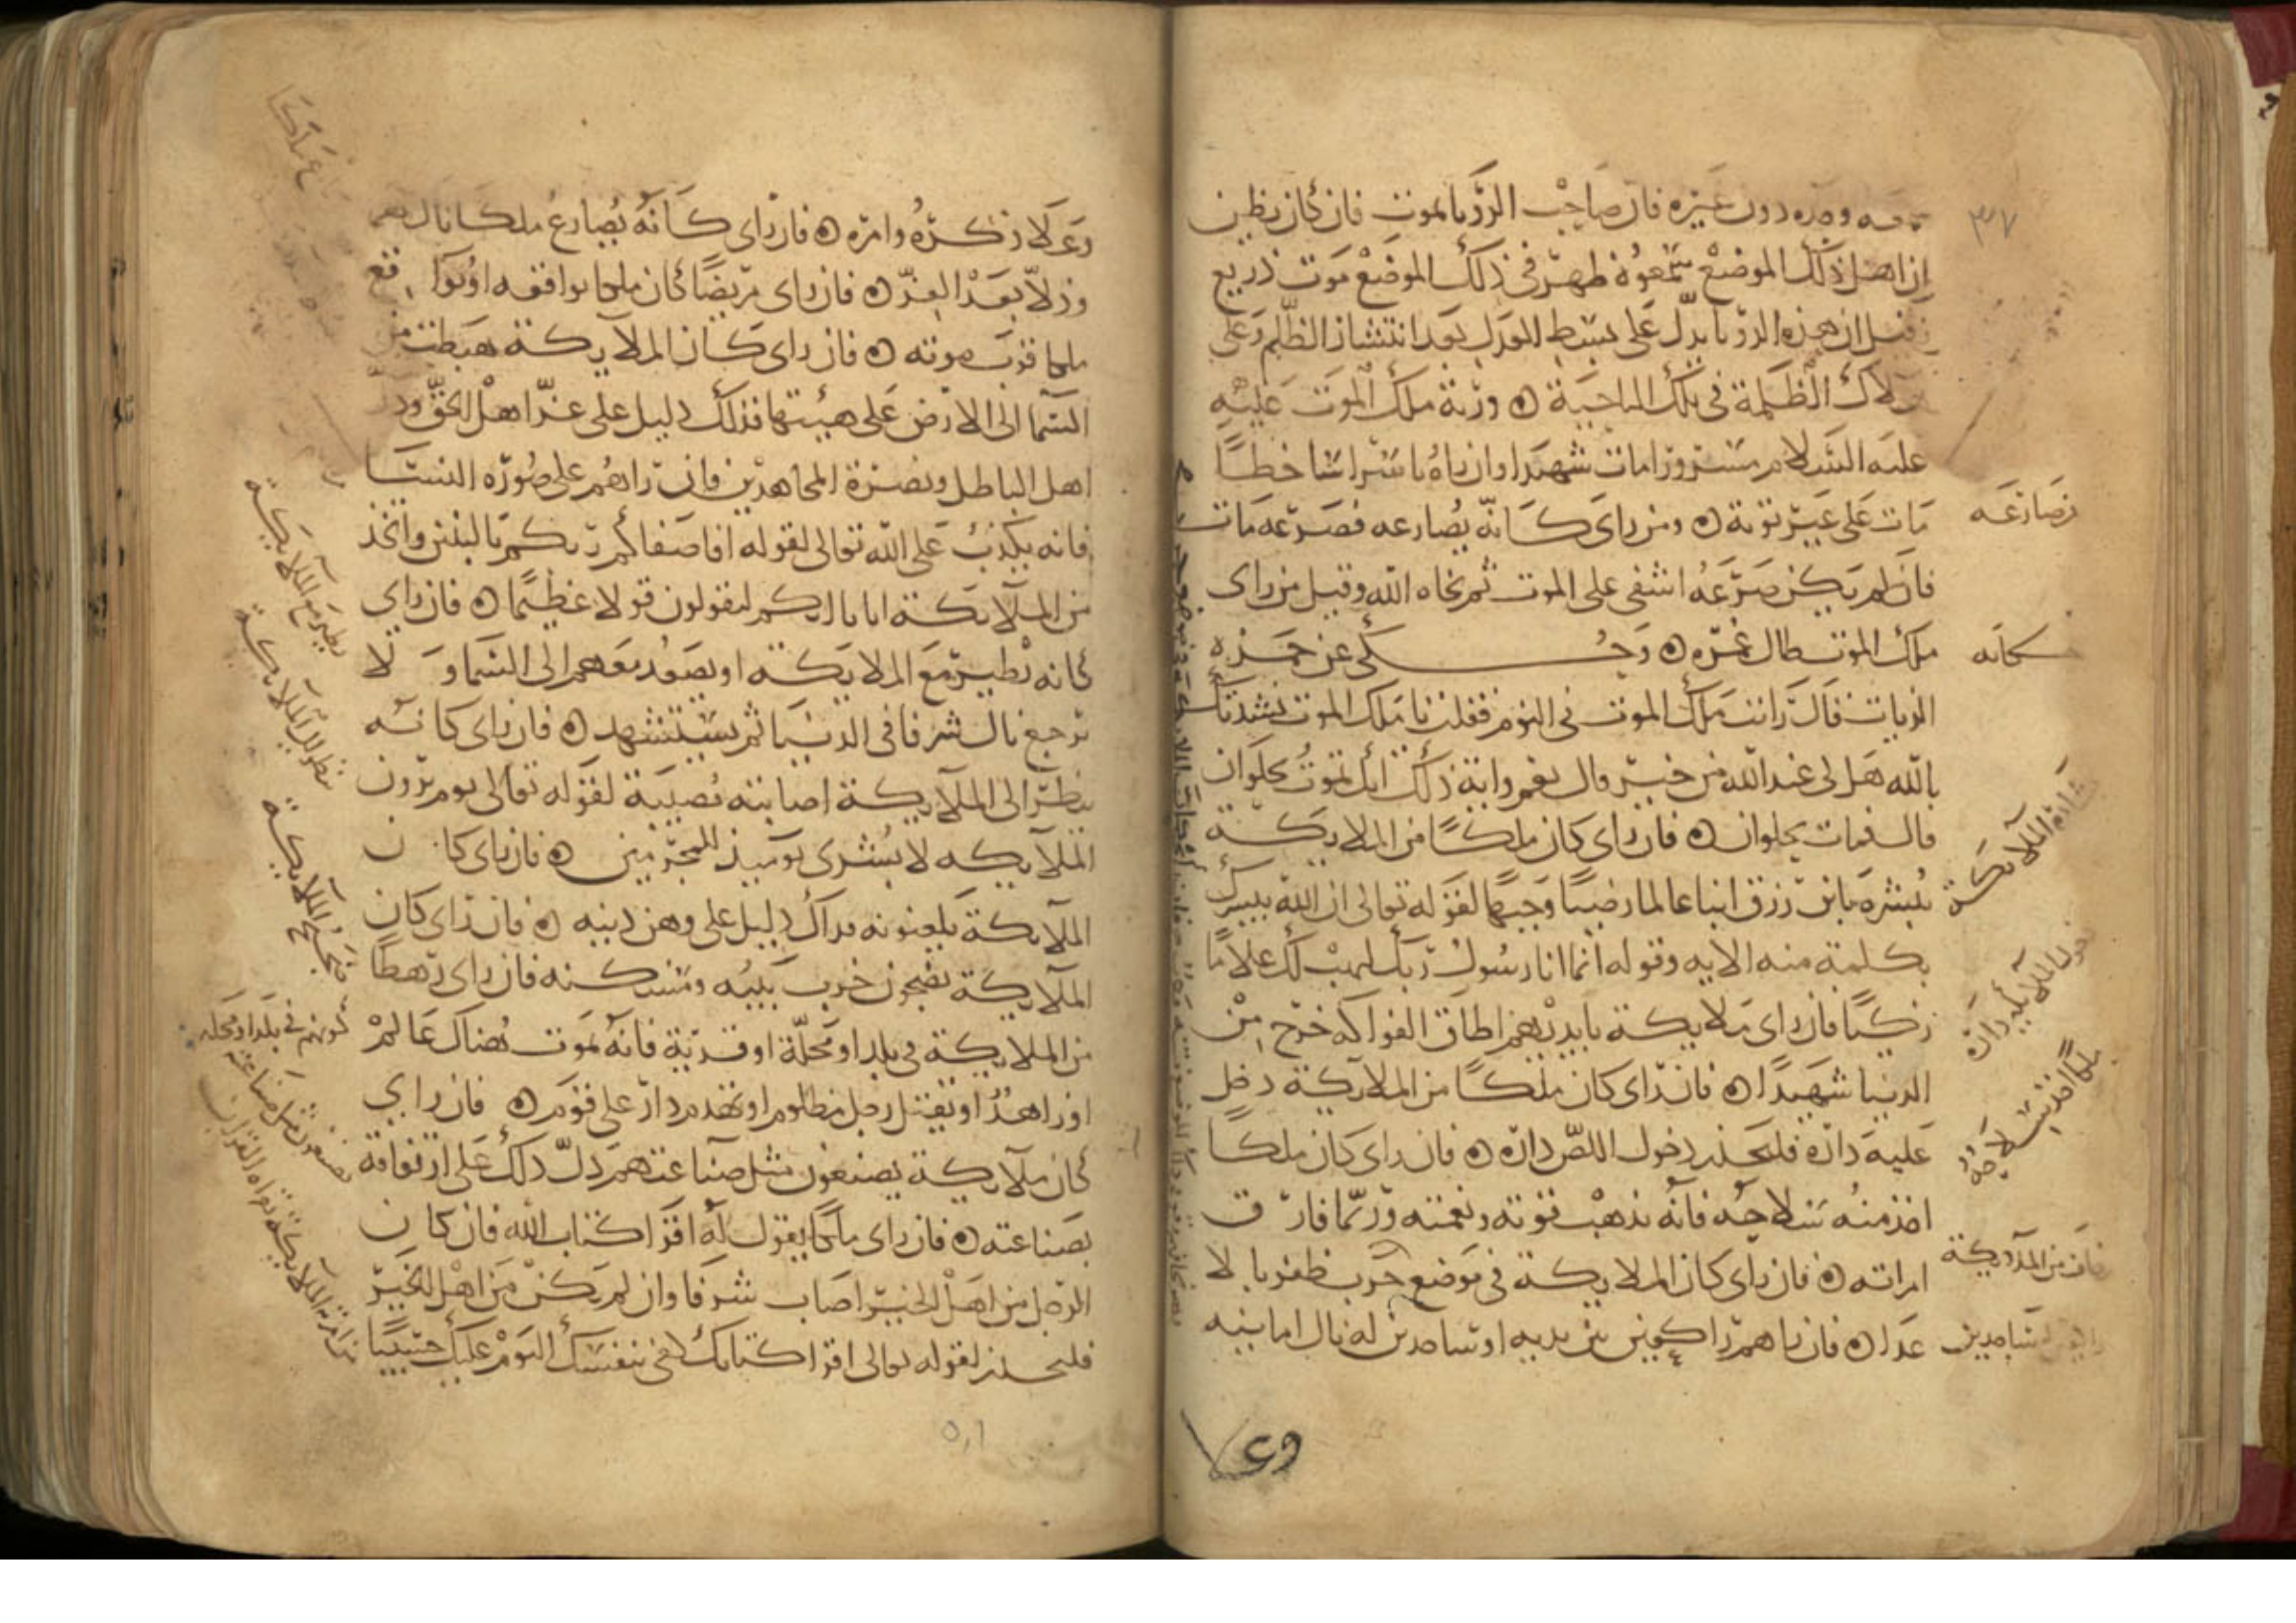 وحده دون غيره فان صاحب الرؤيا يموت فان كان يظن
ان اهل ذلك الموضع سمعوه ظهر في ذلك الموضع موت ذريع
وقيل ان هذه الرؤيا تدل على بسط العدل بعد انتشار الظلم وعلى
هلاك الظلمة في تلك الناحية ورؤية ملك الموت عليه
عليه السلام مسرورا مات شهيدا وان راه باسرا ساخطا
مات على غير توبة ومن راى كانه يصارعه فصرعه مات
فان لم يكن صرعه اشفى على الموت ثم نجاه الله وقيل من راى
ملك الموت طال عمره وحكى عن حمزه
الزيات قال رايت ملك الموت في النوم فقلت يا ملك الموت نشدتك
بالله هل لي عند الله من خير قال نعم واية ذلك انك تموت بحلوان
قال فمات بحلوان فان راى كان ملكا من الملايكة
يبشره بابن رزق ابنا عالما رضيا وجيها لقوله تعالى ان الله يبشرك
بكلمة منه الايه وقوله انما انا رسول ربك ليهب لك غلاما
زكيا فان راى ملايكة بايديهم اطباق الفواكه خرج من
الدنيا شهيدا فان راى كان ملكا من الملايكة دخل
عليه داره فليحذر دخول اللص داره فان راى كان ملكا
اخذ منه سلاحه فانه يذهب قوته ونعمته وربما فارق
امراته فان راى كان الملايكة في موضع حرب ظفر با لا
عدا فان راهم راكعين بين يديه او ساجدين له نال امانيه
يصارعه
كانه
بشارة الملايكة
دخول الملايكة داره
ملكا اخذ سلاحه
وعلا ذكره وامره فان راى كانه يصارع ملكا نال هم
وذلا بعد العز فان راى مريضا كان ملكا يواقعه او يواقع
ملكا قرب موته فان راى كان الملايكة هبطت من
السما الى الارض على هيئتها فذلك دليل على عز اهل الحق وذل
اهل الباطل ونصرة المجاهدين فان راهم على صورة النسا
فانه يكذب على الله تعالى لقوله افاصفاكم ربكم بالبنين واتخذ
من الملايكة اناثا انكم لتقولون قولا عظيما فان راى
كانه يطير مع الملايكة او يصعد معهم الى السما و لا
يرجع نال شرفا في الدنيا ثم يستشهد فان راى كانه
ينظر الى الملايكة اصابته مصيبة لقوله تعالى يوم يرون
الملايكه لا بشرى يوميذ للمجرمين فان راى كان
الملايكة يلعنونه فذاك دليل على وهن دينه فان راى كان
الملايكة يضجون خرب بيته ومسكنه فان راى رهطا
من الملايكة في بلد او محلة او قرية فانه يموت هناك عالم
او زاهد او يقتل رجل مظلوم او تهدم دار على قوم فان راى
كان ملايكة يصنعون مثل صناعته دل ذلك على ارتفاقه
بصناعته فان راى ملكا يقول له اقرا كتاب الله فان كان
الرجل من اهل الخير اصاب شرفا وان لم يكن من اهل الخير
فليحذر لقوله تعالى اقرا كتابك كفى بنفسك اليوم عليك حسيبا
يطير مع الملايكة
ينظر الى الملايكة
ضجيج الملايكة
كونهم في بلد او محله
يصنعون مثل صناعته